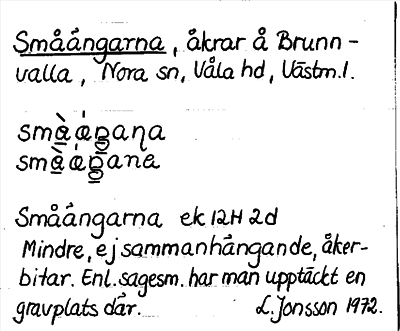 Småängarna, åkrar å Brunn-
valla, Nora sn, Våla hd, Västm.l.
Småängarna ek 12H 2d
Mindre, ej sammanhängande, åker-
bitar. Enl. sagesm. har man upptäckt en
gravplats där. L. Jonsson 1972.